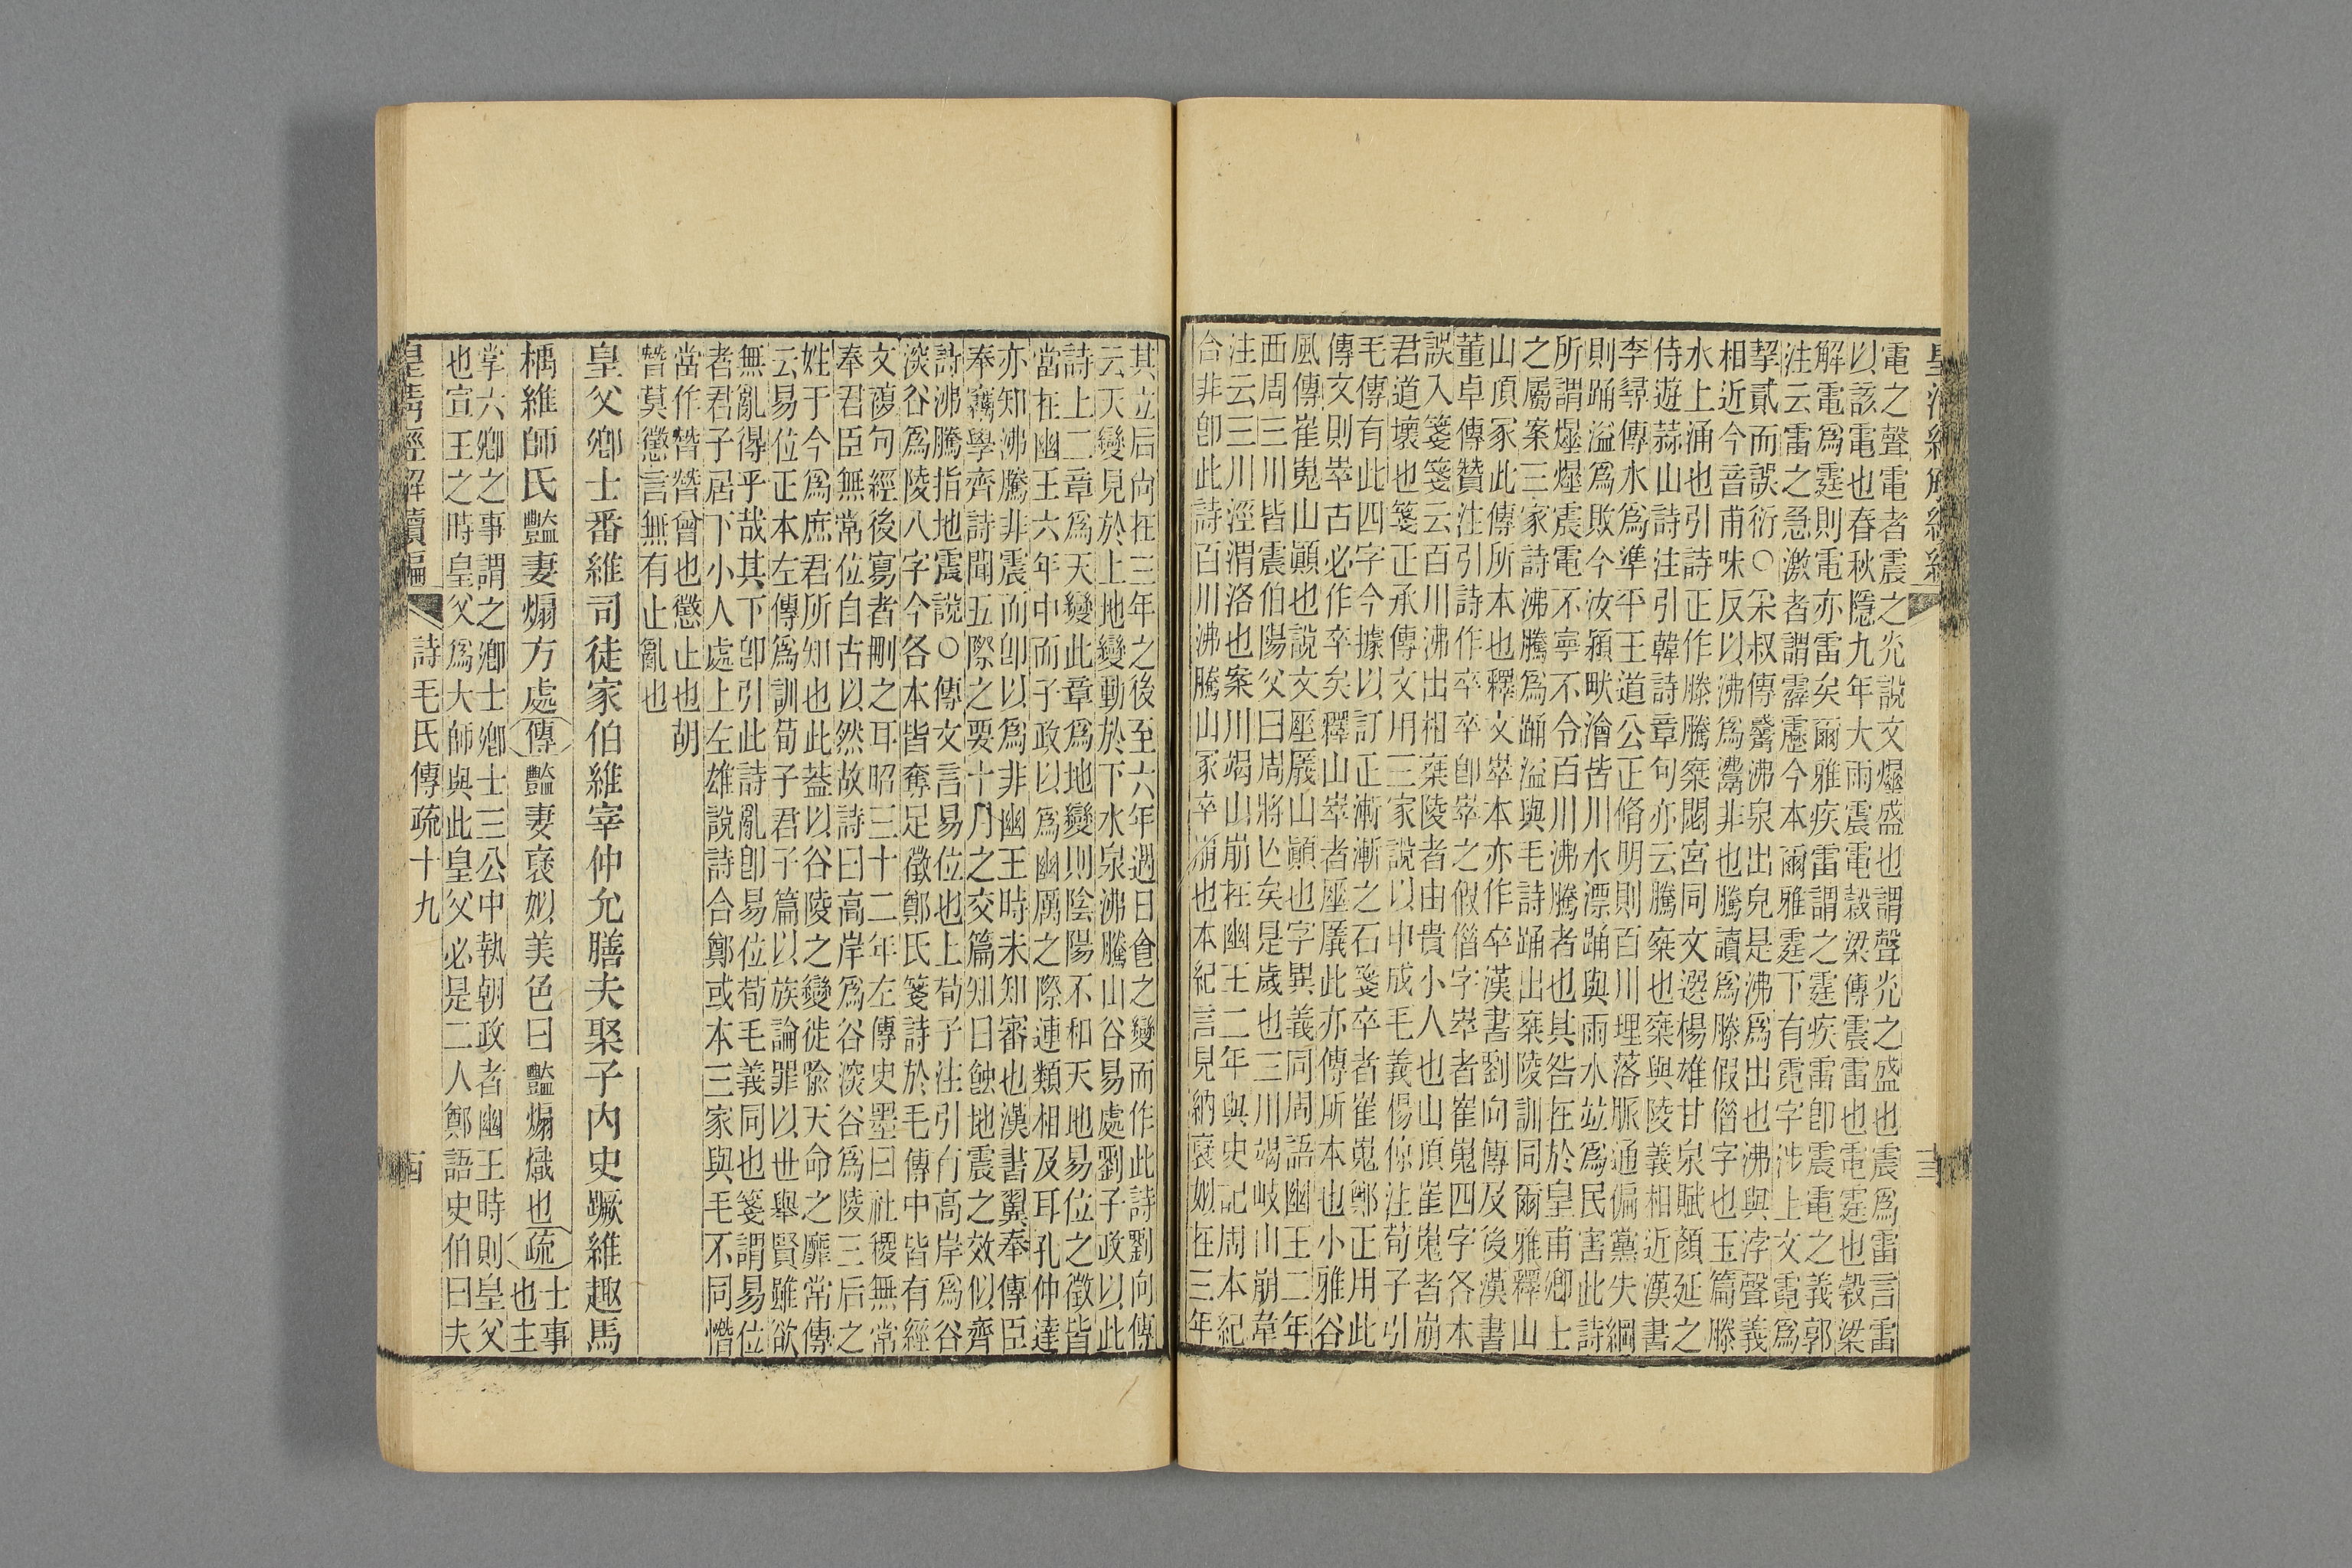 電之聲電者震之光說文燿盛也謂聲光之盛也震爲雷言雷
以該電也春秋隱九年大雨震電穀梁傳震雷也電霆也穀梁
解電爲霆則電亦雷矣爾雅疾雷謂之霆疾雷卽震電之義郭
注云雷之急激者謂霹靂今本爾雅霆下有霓字涉上文霓爲
挈貳而誤衍○采叔傳觱沸泉出皃是沸爲出也沸與浡聲義
相近今音甫味反以沸爲灊非也騰讀爲滕假借字也玉篇滕
水上涌也引詩正作滕騰椉閟宮同文選楊雄甘泉賦顏延之
侍遊蒜山詩注引韓詩章句亦云騰椉也椉與陵義相近漢書
李尋傳水爲準平王道公正脩明則百川理落脈通偏黨失綱
則踊溢爲敗今汝潁畎澮皆川水漂踊與雨水竝爲民害此詩
所謂燿燿震電不寧不令百川沸騰者也其咎在於皇甫卿士
之屬案三家詩沸騰爲踊溢與毛詩踊出椉陵訓同爾雅釋山
山頂冢此傳所本也釋文崒本亦作卒漢書劉向傳及後漢書
董卓傳贊注引詩作卒卒卽崒之假借字崒者崔嵬四字各本
誤入箋箋云百川沸出相椉陵者由貴小人也山頂崔嵬者崩
君道壞也箋正承傳文用三家說以申成毛義楊倞注荀子引
毛傳有此四字今據以訂正漸漸之石箋卒者崔嵬鄭正用此
傳文則崒古必作卒矣釋山崒者㕒㕒此亦傳所本也小雅谷
風傳崔嵬山顚也說文㕒㕒山顚也字異義同周語幽王二年
西周三川皆震伯陽父曰周將亡矣是歲也三川竭岐山崩韋
注云三川涇渭洛也案川竭山崩在幽王二年與史記周本紀
合非卽此詩百川沸騰山冢卒崩也本紀言見納襃姒在三年
其立后尚在三年之後至六年遇日食之變而作此詩劉向傳
云天變見於上地變動於下水泉沸騰山谷易處劉子政以此
詩上二章爲天變此章爲地變則陰陽不和天地易位之徵皆
當在幽王六年中而子政以爲幽厲之際連類相及耳孔仲達
亦知沸騰非震而卽以爲非幽王時未知審也漢書翼奉傳臣
奉竊學齊詩聞五際之要十月之交篇知日蝕地震之效似齊
詩沸騰指地震說○傳文言易位也上荀子注引有高岸爲谷
深谷爲陵八字今各本皆奪足徵鄭氏箋詩於毛傳中皆有經
文複句經後寫者刪之耳昭三十二年左傳史墨曰社稷無常
奉君臣無常位自古以然故詩曰高岸爲谷深谷爲陵三后之
姓于今爲庶君所知也此葢以谷陵之變徙喩天命之靡常傳
云易位正本左傳爲訓荀子君子篇以族論罪以世舉賢雖欲
無亂得乎哉其下卽引此詩亂卽易位荀毛義同也箋謂易位
者君子居下小人處上左雄說詩合鄭或本三家與毛不同憯
當作朁朁曾也懲止也胡
朁莫懲言無有止亂也
皇父卿士番維司徒家伯維宰仲允膳夫棸子內史蹶維趣馬
楀維師氏豔妻煽方處傳豔妻襃姒美色曰豔煽熾也疏士事也主
掌六卿之事謂之卿士卿士三公中執朝政者幽王時則皇父
也宣王之時皇父爲大師與此皇父必是二人鄭語史伯曰夫
皇清經解續編 詩毛氏傳疏十九